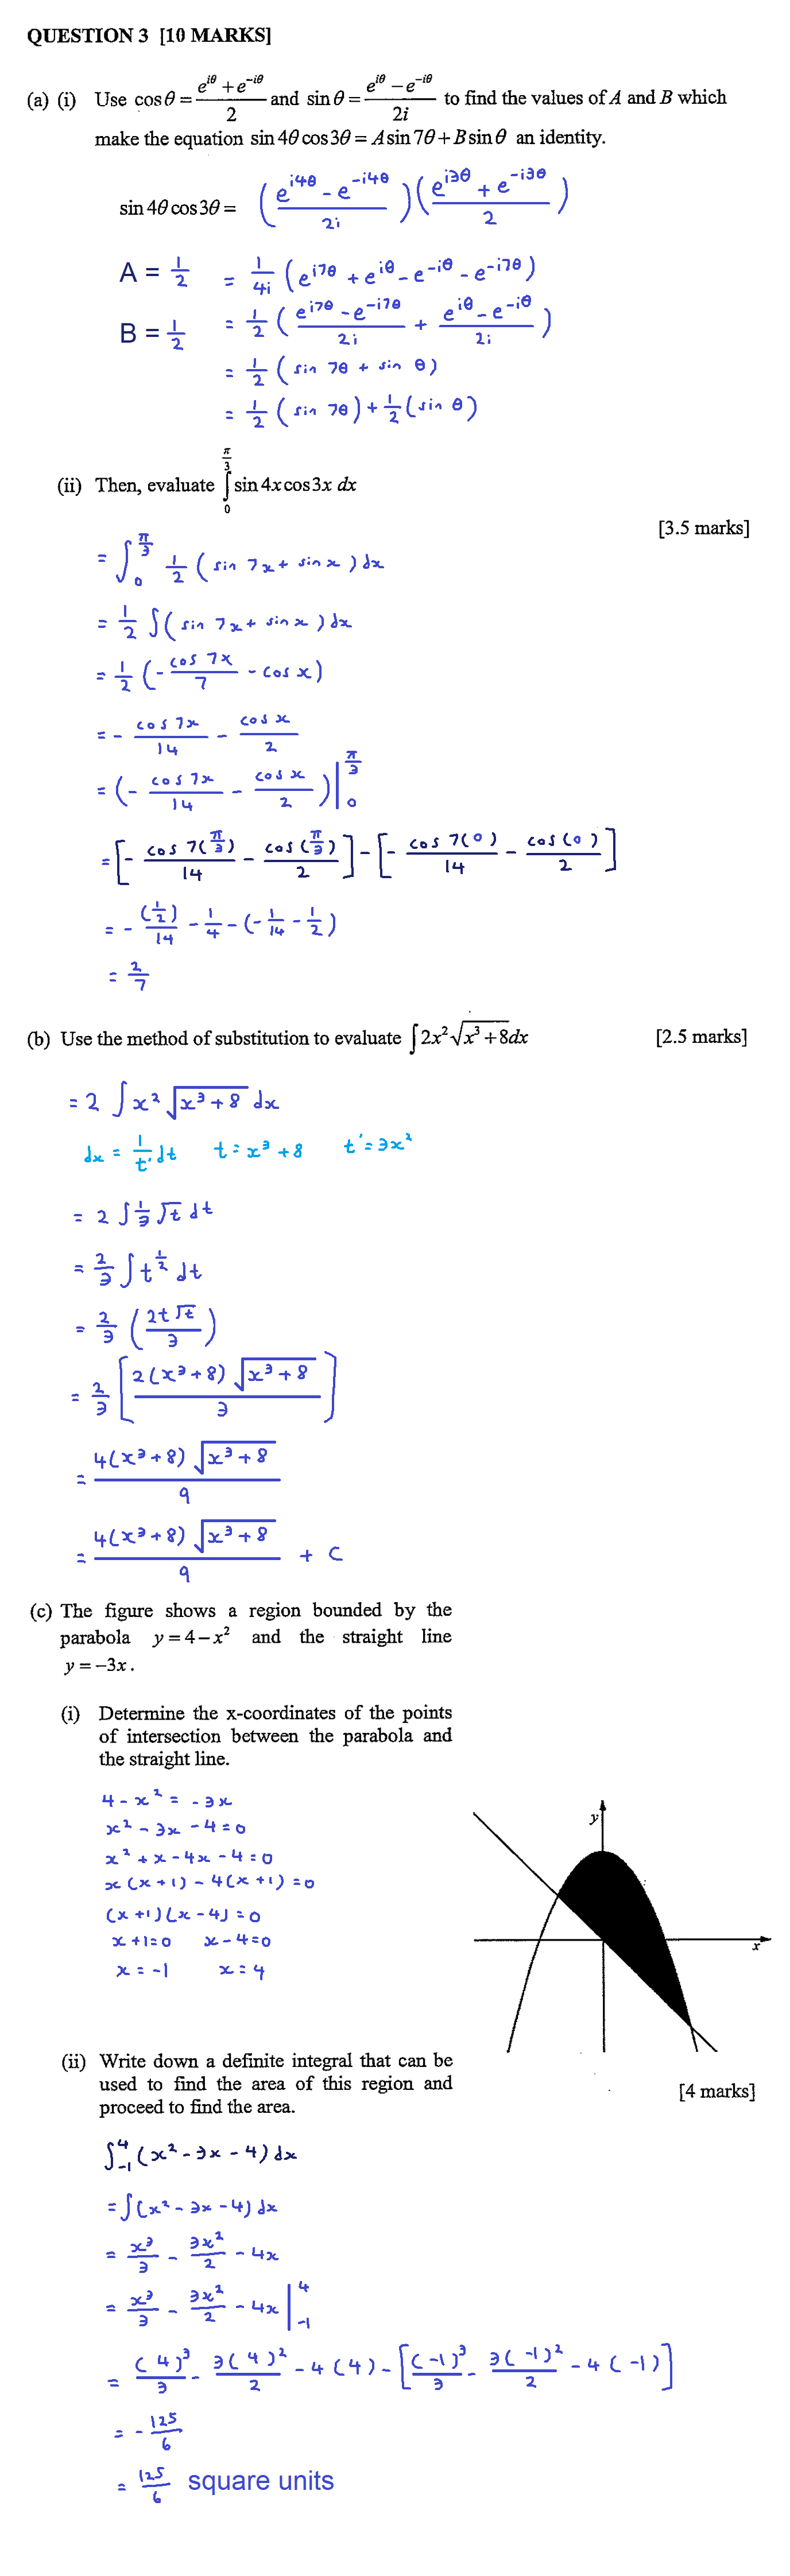 QUESTION 3 [10 MARKS]
(a) (i) Use cos θ = (e^{iθ} + e^{-iθ})/2 and sin θ = (e^{iθ} − e^{-iθ})/2i to find the values of A and B which
make the equation sin 4θ cos 3θ = A sin 7θ + B sin θ an identity.
sin 4θ cos 3θ = ((e^{i4θ} − e^{-i4θ})/2i)((e^{i3θ} + e^{-i3θ})/2)
A = 1/2 = 1/4i (e^{i7θ} + e^{iθ} − e^{-iθ} − e^{-i7θ})
B = 1/2 = 1/2 ((e^{i7θ} − e^{-i7θ})/2i + (e^{iθ} − e^{-iθ})/2i)
= 1/2 (sin 7θ + sin θ)
= 1/2 (sin 7θ) + 1/2 (sin θ)
(ii) Then, evaluate ∫_0^{π/3} sin 4x cos 3x dx
[3.5 marks]
= ∫_0^{π/3} 1/2 (sin 7x + sin x) dx
= 1/2 ∫(sin 7x + sin x) dx
= 1/2 (−cos 7x/7 − cos x)
= −cos 7x/14 − cos x/2
= (−cos 7x/14 − cos x/2)|_0^{π/3}
= [−cos 7(π/3)/14 − cos(π/3)/2] − [−cos 7(0)/14 − cos(0)/2]
= −(1/2)/14 − 1/4 − (−1/14 − 1/2)
= 2/7
(b) Use the method of substitution to evaluate ∫2x²√(x³+8)dx [2.5 marks]
= 2 ∫ x² √(x³+8) dx
dx = 1/t' dt t = x³ + 8 t' = 3x²
= 2 ∫ 1/3 √t dt
= 2/3 ∫ t^{1/2} dt
= 2/3 (2t√t/3)
= 2/3 [2(x³+8)√(x³+8)/3]
= 4(x³+8)√(x³+8)/9
= 4(x³+8)√(x³+8)/9 + C
(c) The figure shows a region bounded by the
parabola y = 4 − x² and the straight line
y = −3x.
(i) Determine the x-coordinates of the points
of intersection between the parabola and
the straight line.
4 − x² = −3x
x² − 3x − 4 = 0
x² + x − 4x − 4 = 0
x(x+1) − 4(x+1) = 0
(x+1)(x−4) = 0
x+1=0 x−4=0
x = −1 x = 4
y
x
(ii) Write down a definite integral that can be
used to find the area of this region and
proceed to find the area.
[4 marks]
∫_{-1}^4 (x² − 3x − 4) dx
= ∫(x² − 3x − 4) dx
= x³/3 − 3x²/2 − 4x
= x³/3 − 3x²/2 − 4x |_{-1}^4
= (4)³/3 − 3(4)²/2 − 4(4) − [(−1)³/3 − 3(−1)²/2 − 4(−1)]
= −125/6
= 125/6 square units